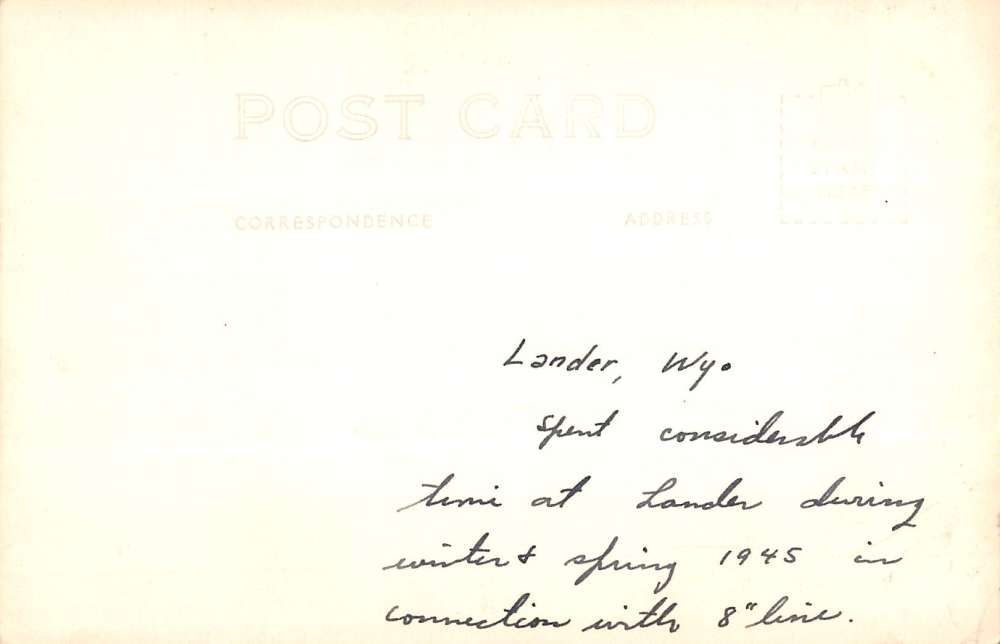 POST CARD
CORRESPONDENCE ADDRESS
Lander, Wyo
Spent considerable
time at Lander during
winter & spring 1945 in
connection with 8" line.